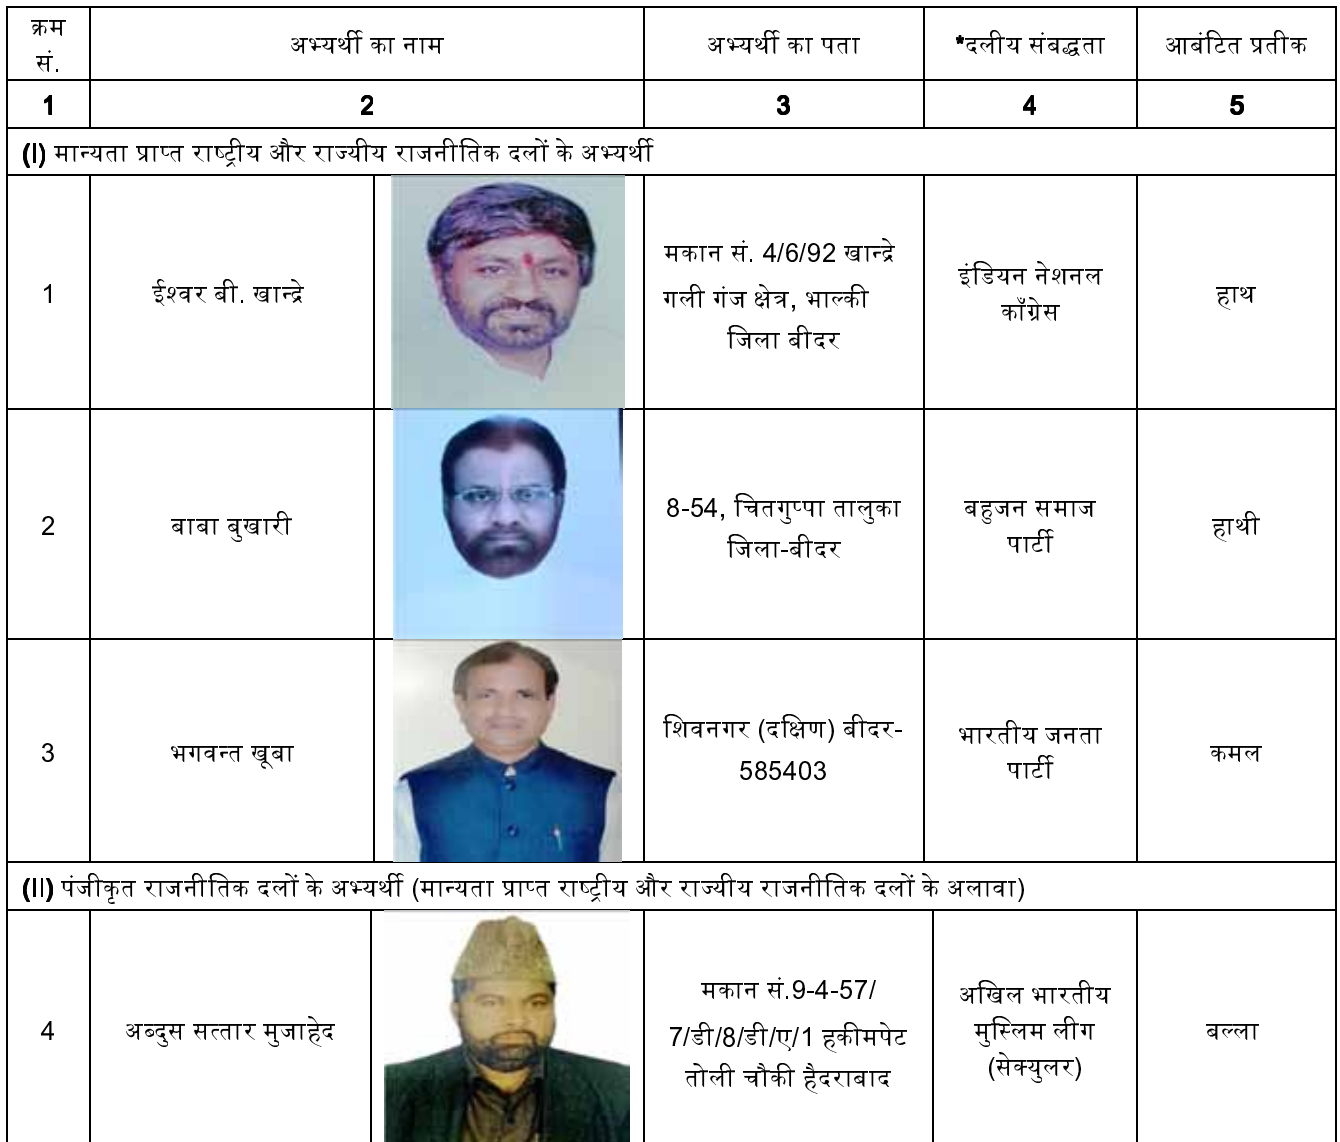 क्रम
सं.
अभ्यर्थी का नाम
अभ्यर्थी का पता
*दलीय संबद्धता
आबंटित प्रतीक
1
2
3
4
5
(I) मान्यता प्राप्त राष्ट्रीय और राज्यीय राजनीतिक दलों के अभ्यर्थी
1
ईश्वर बी. खान्द्रे
मकान सं. 4/6/92 खान्द्रे
गली गंज क्षेत्र, भाल्की
जिला बीदर
इंडियन नेशनल
काँग्रेस
हाथ
2
बाबा बुखारी
8-54, चितगुप्पा तालुका
जिला-बीदर
बहुजन समाज
पार्टी
हाथी
3
भगवन्त खूबा
शिवनगर (दक्षिण) बीदर-
585403
भारतीय जनता
पार्टी
कमल
(II) पंजीकृत राजनीतिक दलों के अभ्यर्थी (मान्यता प्राप्त राष्ट्रीय और राज्यीय राजनीतिक दलों के अलावा)
4
अब्दुस सत्तार मुजाहेद
मकान सं.9-4-57/
7/डी/8/डी/ए/1 हकीमपेट
तोली चौकी हैदराबाद
अखिल भारतीय
मुस्लिम लीग
(सेक्युलर)
बल्ला